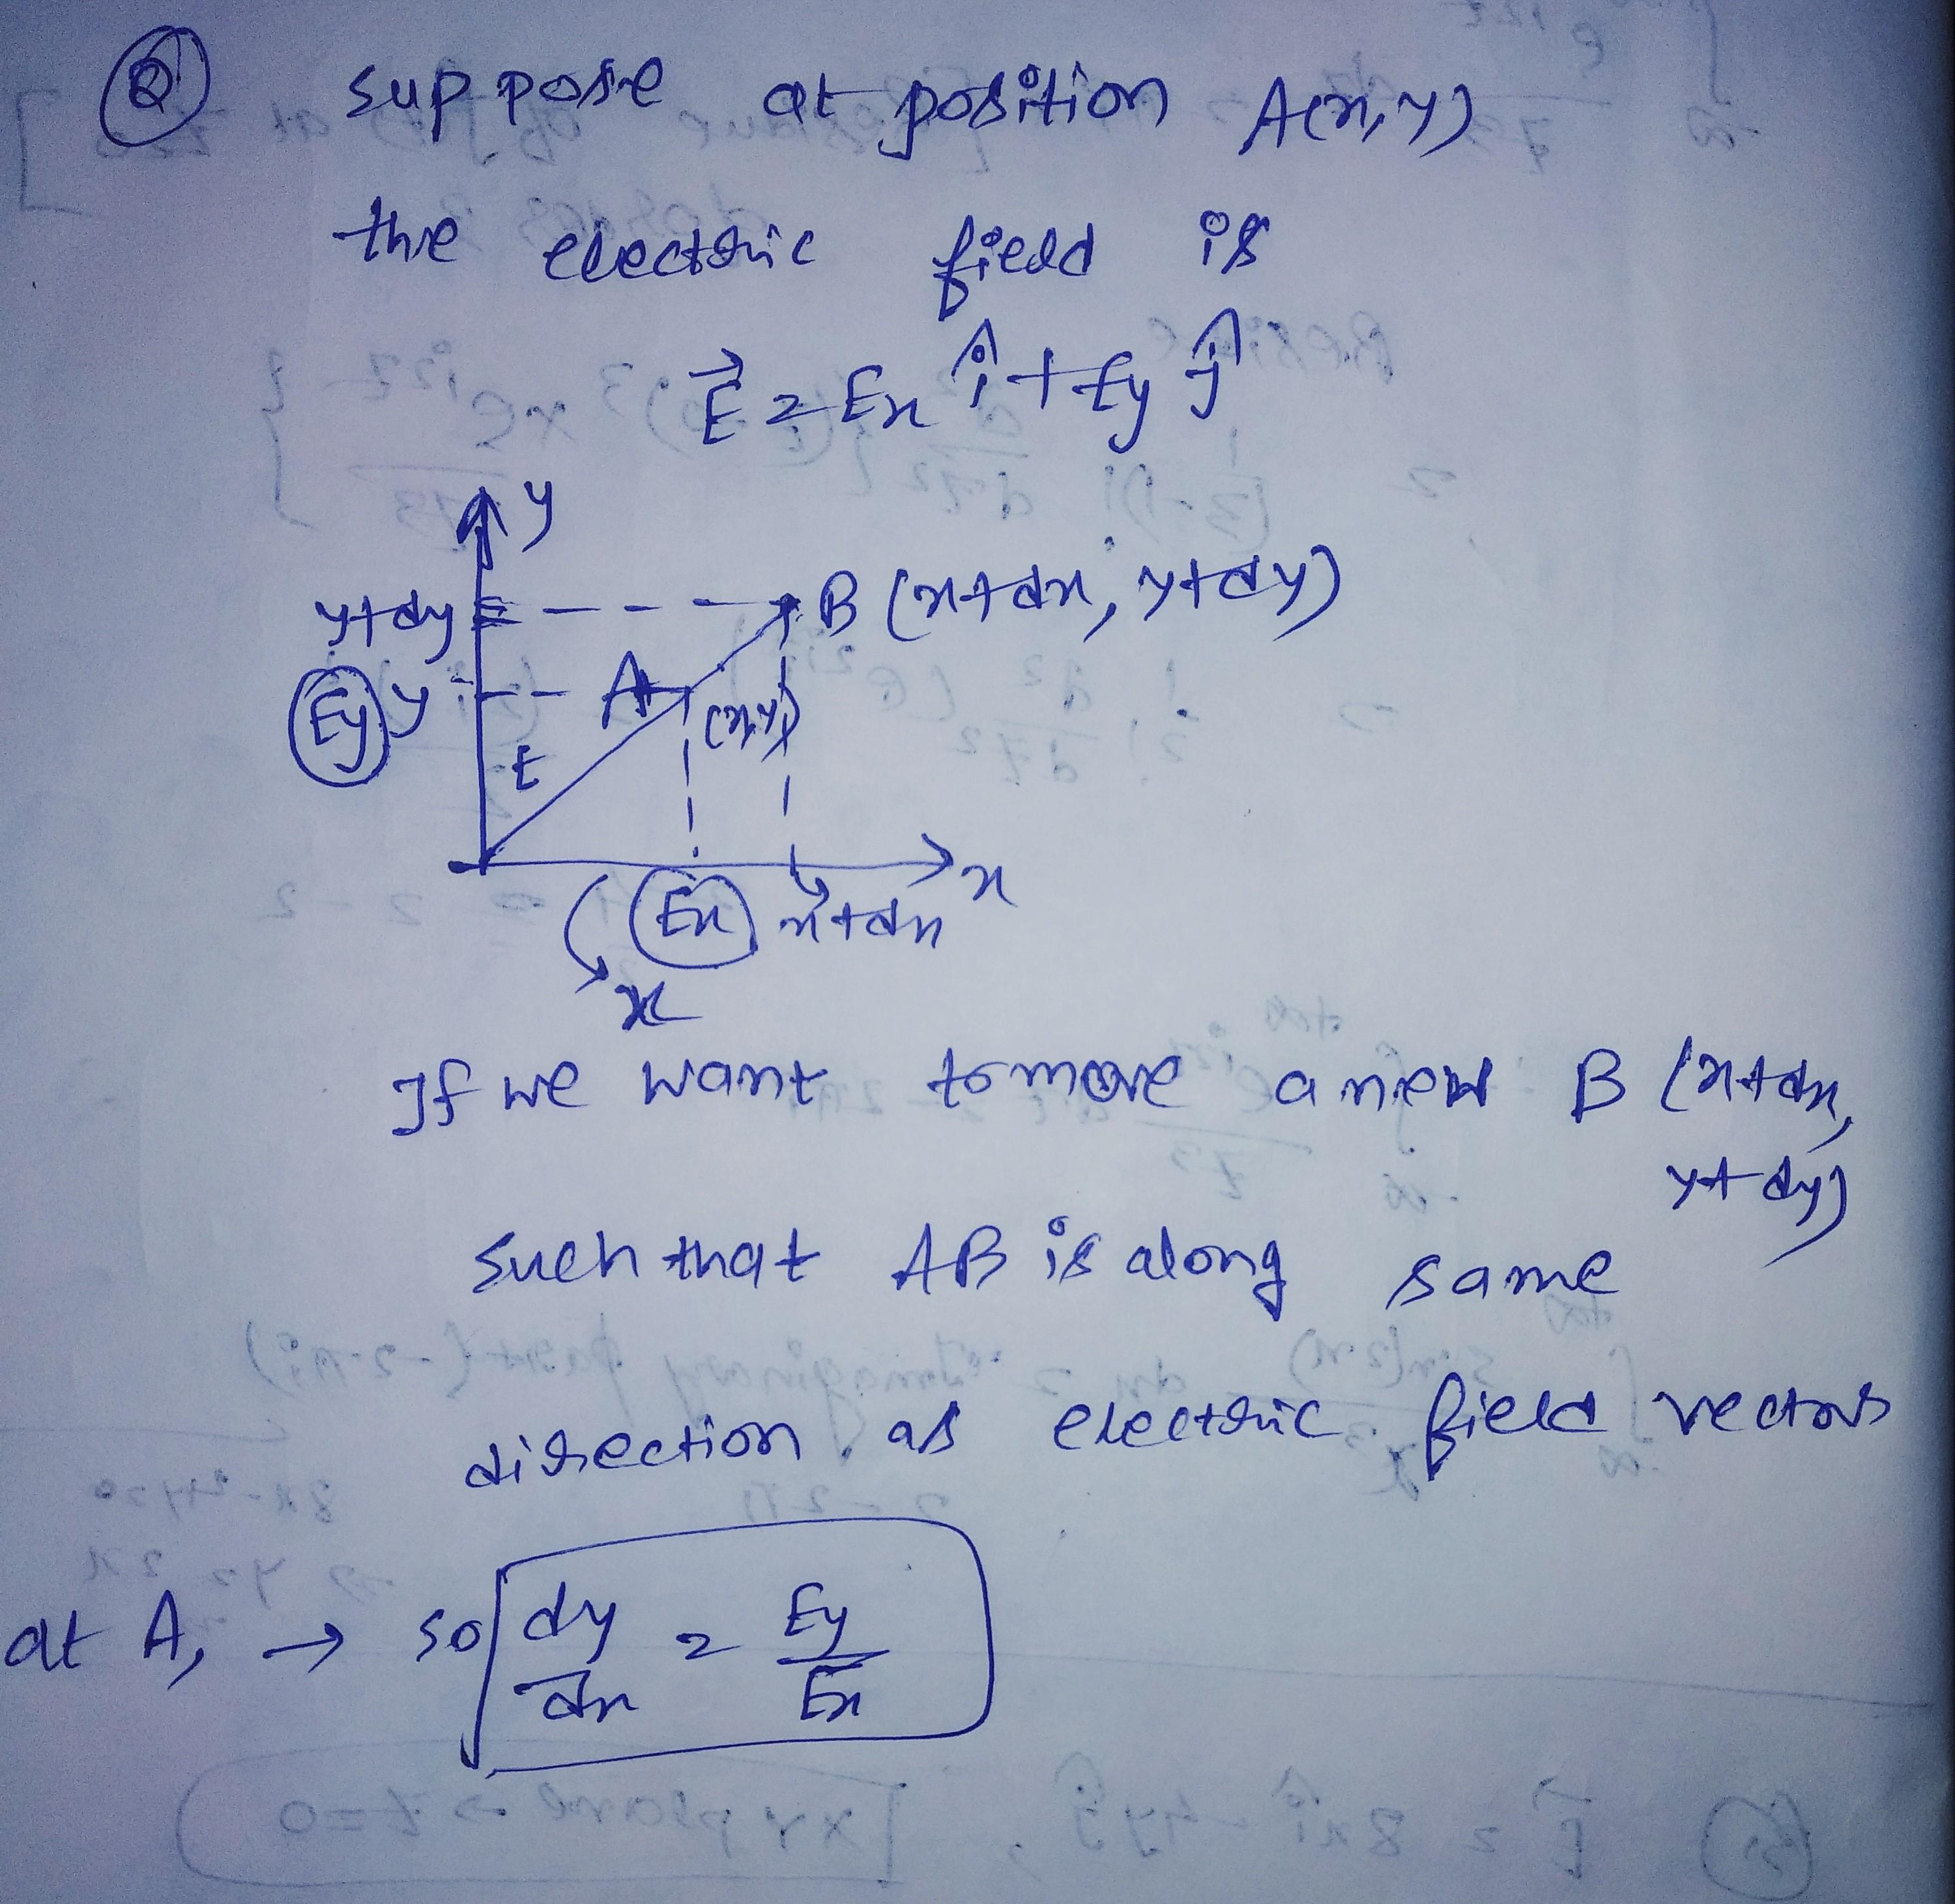 Q suppose at position A(x,y)
the electric field is
E⃗ = Ex î + Ey ĵ
y
y+dy B (x+dx, y+dy)
Ey y A (x,y)
E
x
Ex x+dx
x
If we want to move a new B (x+dx,
y+dy)
such that AB is along same
direction as electric field vectors
at A, → so dy/dx = Ey/Ex